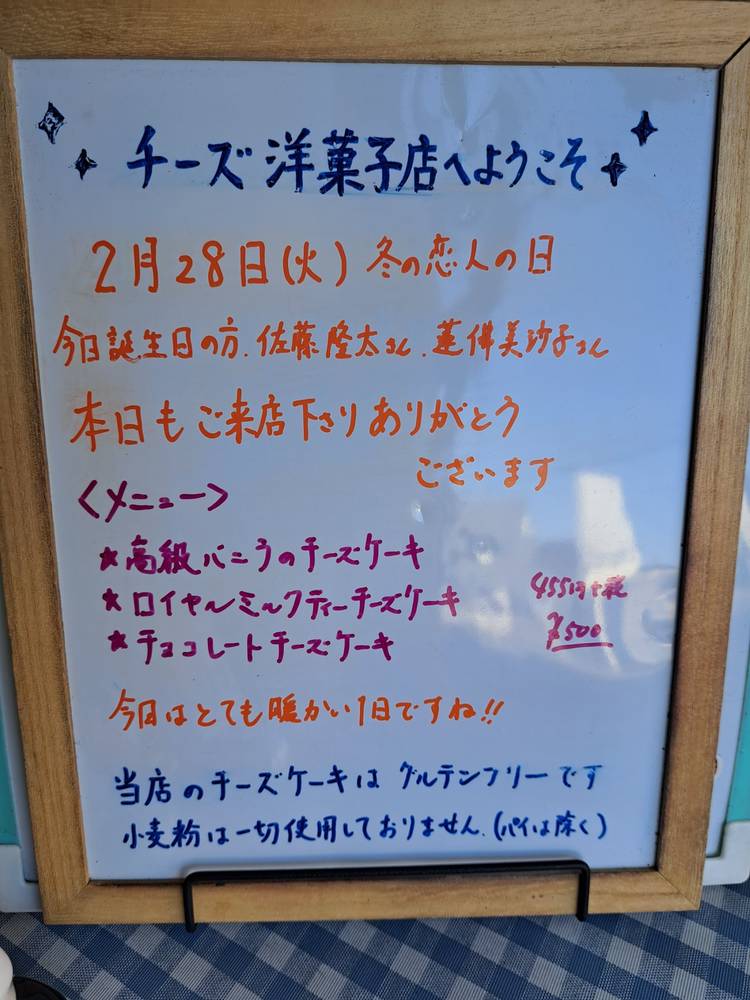 チーズ洋菓子店へようこそ
2月28日(火) 冬の恋人の日
今日誕生日の方、佐藤隆太さん、蓮佛美沙子さん
本日もご来店下さりありがとう
ございます
<メニュー>
★高級バニラのチーズケーキ
★ロイヤルミルクティーチーズケーキ 455円+税
¥500
★チョコレートチーズケーキ
今日はとても暖かい1日ですね!!
当店のチーズケーキはグルテンフリーです
小麦粉は一切使用しておりません。(パイは除く)